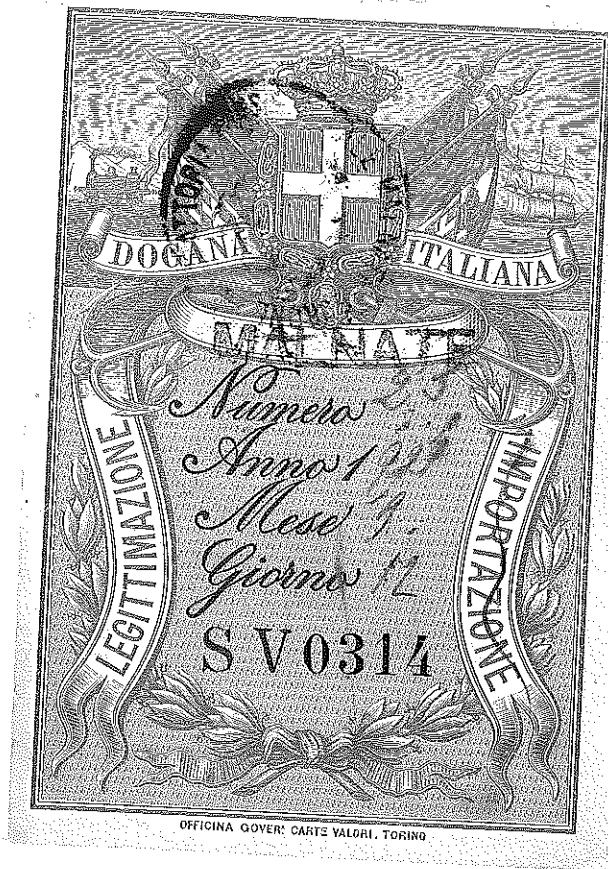 DOGANA ITALIANA
MALNATE
LEGITTIMAZIONE
IMPORTAZIONE
Numero
Anno 1
Mese 9.
Giorno 12
S V0314
OFFICINA GOVER. CARTE VALORI. TORINO